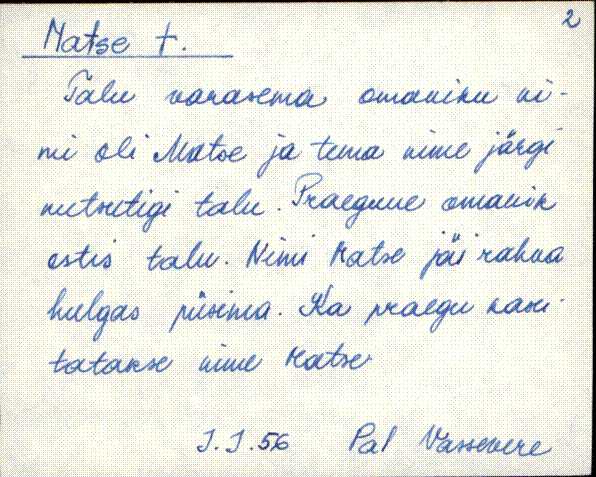 2
Matse t.
Talu varasema omaniku ni-
mi oli Matse ja tema nime järgi
nutsutigi talu. Praegune omanik
ostis talu. Nimi Matse jäi rahva
hulgas püsima. Ka praegu kasu-
tatakse nime Matse
J.J.56 Pal Vassevere